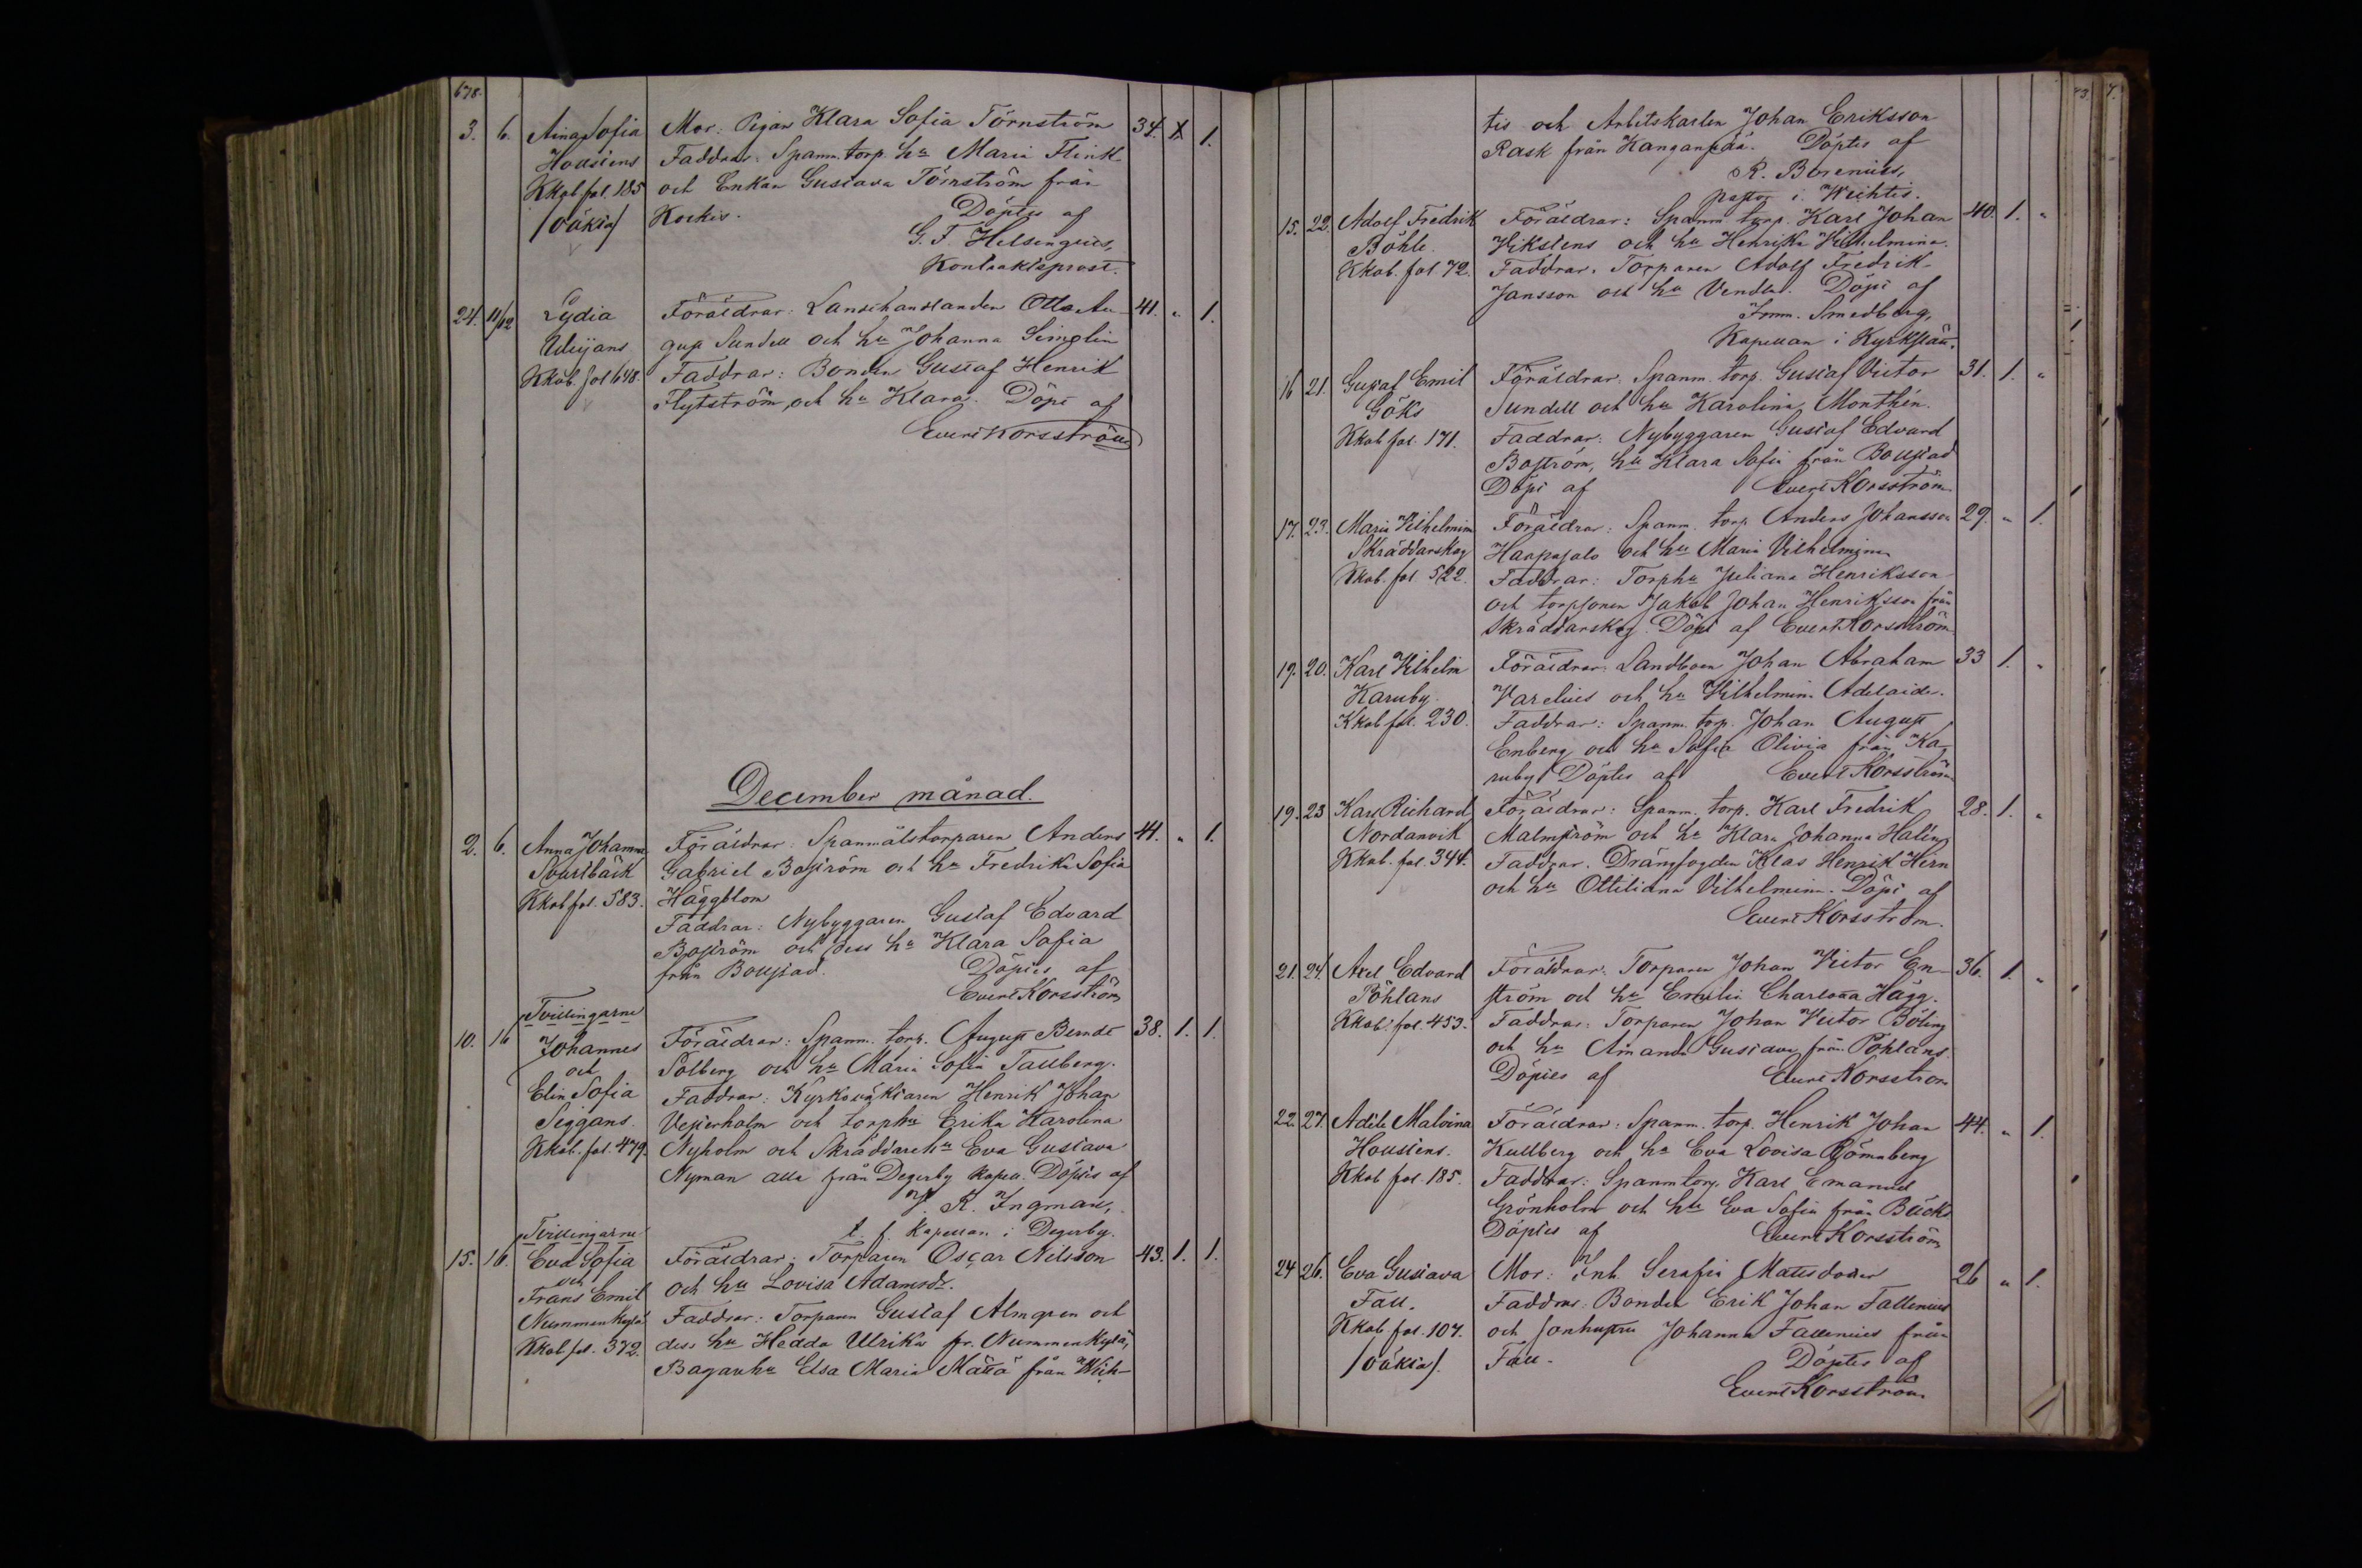 678.
3. 6. Aina Sofia Mor: Pigan Klara Sofia Törnström 34. X 1.
Housiens Faddrar: Spanm. torp. hu Maria Flink
Kkob fol. 185 och Enkan Gustava Törnström från
/Oäkta/ Kockis. Döptes af
G. F. Helsengius,
Kontraktsprost.
24. 11/12 Lydia Föräldrar: Landthandlanden Otto Au- 41. „ 1.
gust Sundell och hu Johanna Simolin
Kkob. fol 648. Faddrar: Bonden Gustaf Henrik
Flytström, och hu Klara. Döpt af
Evert Korsström
December månad.
2. 6. Anna Johanna Föräldrar: Spanmålstorparen Anders 41. „ 1.
Svartbäck Gabriel Boström och hu Fredrika Sofia
Kkob fol. 583. Häggblom
Faddrar: Nybyggaren Gustaf Edvard
Boström och dess hu Klara Sofia
från Boustad. Döptes af
Evert Korsström
Tvillingarne
10. 16 Johannes Föräldrar: Spanm. torp. August Berndt 38. 1. 1.
och Solberg och hu Maria Sofia Tallberg.
Elin Sofia Faddrar: Kyrkoväktaren Henrik Johan
Siggans. Vesterholm och torphu Erika Karolina
Kkob. fol. 479. Nyholm och Skräddarehu Eva Gustava
Nyman alla från Degerby kapell. Döptes af
K. Ingman,
t. f. Kapellan i Degerby.
Tvillingarne
15. 16. Eva Sofia Föräldrar: Torparen Oscar Nilsson 43. 1. 1.
och och hu Lovisa Adamsdr.
Frans Emil
Nummenkylä Faddrar: Torparen Gustaf Almgren och
Kkob fol. 372. dess hu Hedda Ulrika fr. Nummenkylä,
Bagarehu Elsa Maria Mättä från Wich-
tis och Arbetskarlen Johan Eriksson
Rask från Kanganpää. Döptes af
R. Borenius,
Pastor i Wichtis.
15. 22. Adolf Fredrik Föräldrar: Spanm. torp. Karl Johan 40. 1. „
Böhle. Vikstens och hu Henrika Vilhelmina.
Kkob. fol 72. Faddrar: Torparen Adolf Fredrik
Jansson och hu Vendla. Döpt af
Imm. Smedberg,
Kapellan i Kyrkslätt.
16 21. Gustaf Emil Föräldrar: Spanm. torp. Gustaf Victor 31. 1. „
Göks Sundell och hu Karolina Monthén.
Kkob fol. 171. Faddrar: Nybyggaren Gustaf Edvard
Boström, hu Klara Sofia från Boustad
Döpt af Evert Korsström
17. 23. Maria Vilhelmina Föräldrar: Spanm. torp. Anders Johansson 29. „ 1.
Skräddarskog Haapasalo och hu Maria Vilhelmina
Kkob. fol. 522. Faddrar: Torphu Juliana Henriksson
och torpsonen Jakob Johan Henriksson från
Skräddarskog. Döpt af Evert Korsström
19. 20. Karl Vilhelm Föräldrar: Landboen Johan Abraham 33 1. „
Karuby. Varelius och hu Vilhelmin. Adelaide.
Kkob fol. 230. Faddrar: Spanm. torp. Johan August
Enberg och hu Sofia Olivia från Ka-
ruby. Döptes af Evert Korsström
19. 23 Karl Richard Föräldrar: Spanm. torp. Karl Fredrik 28. 1. „
Nordanvik Malmström och hu Klara Johanna Haling
Kkob. fol. 344. Faddrar. Drängfogden Klas Henrik Hern
och hu Ottiliana Vilhelmina. Döpt af
Evert Korsström.
21. 24. Axel Edvard Föräldrar: Torparen Johan Victor En- 36. 1. „
Pöhlans ström och hu Emilia Charlotta Hägg.
Kkob. fol. 453. Faddrar: Torparen Johan Victor Böling
och hu Amanda Gustava från Pöhlans.
Döptes af Evert Korsström
22. 27. Adéle Malvina Föräldrar: Spanm. torp. Henrik Johan 44. „ 1.
Housiens. Kullberg och hu Eva Lovisa Römnberg
Kkob fol. 185. Faddrar: Spanm torp. Karl Emanuel
Grönholm och hu Eva Sofia från Bäcks
Döptes af Evert Korsström
24 26. Eva Gustava Mor: Inh. Serafia Mattsdotter 26 „ 1.
Tall. Faddrar: Bonden Erik Johan Tallenius
Kkob. fol. 107. och Johanna Tallenius från
/Oäkta/. Tall. Döptes af
Evert Korsström